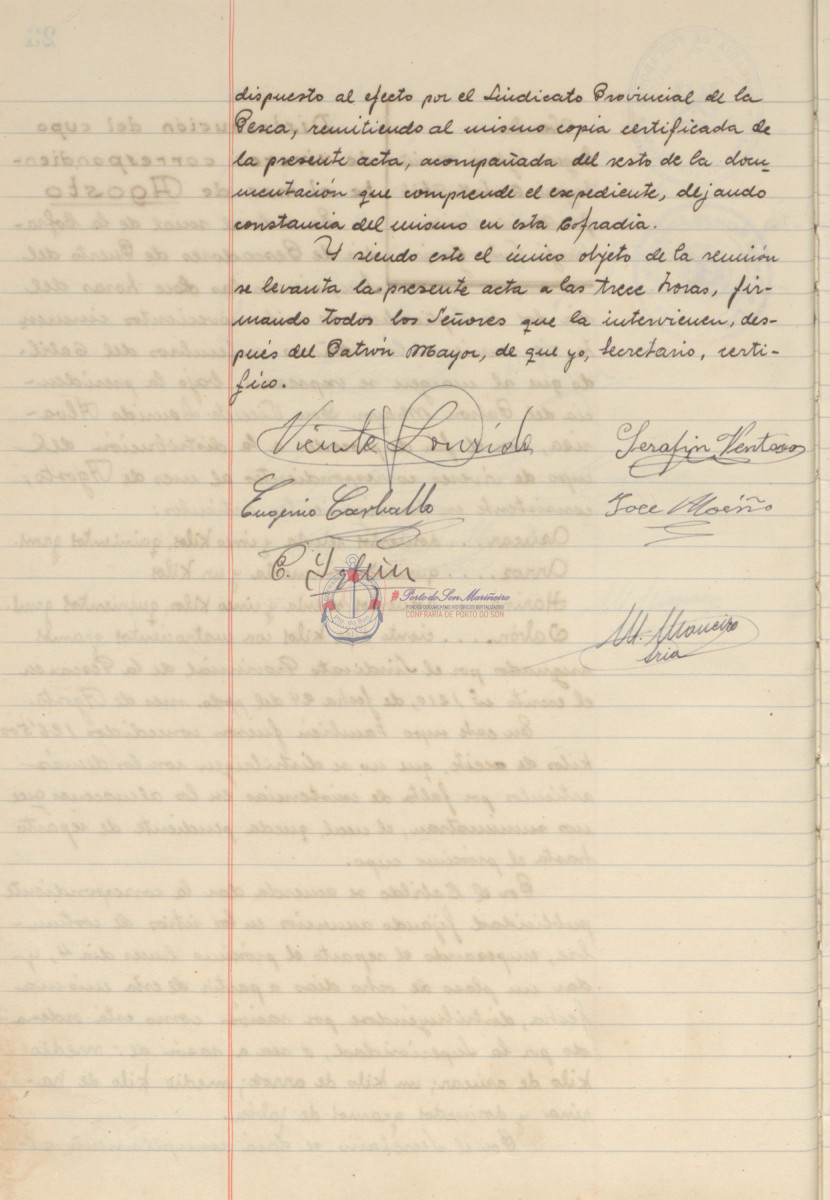 dispuesto al efecto por el Sindicato Provincial de la
Pesca, remitiendo al mismo copia certificada de
la presente acta, acompañada del resto de la docu-
mentación que comprende el expediente, dejando
constancia del mismo en esta Cofradía.
Y siendo este el único objeto de la reunión
se levanta la presente acta a las trece horas, fir-
mando todos los Señores que la intervienen, des-
pués del Patrón Mayor, de que yo, Secretario, certi-
fico.
Vicente Lourido
Serafin Ventoso
Eugenio Carballo
Jose
C.
Porto do Son Mariñeiro
FONDOS DOCUMENTAIS HISTÓRICOS DIXITALIZADOS
CONFRARÍA DE PORTO DO SON
M. Maneiro
Sria